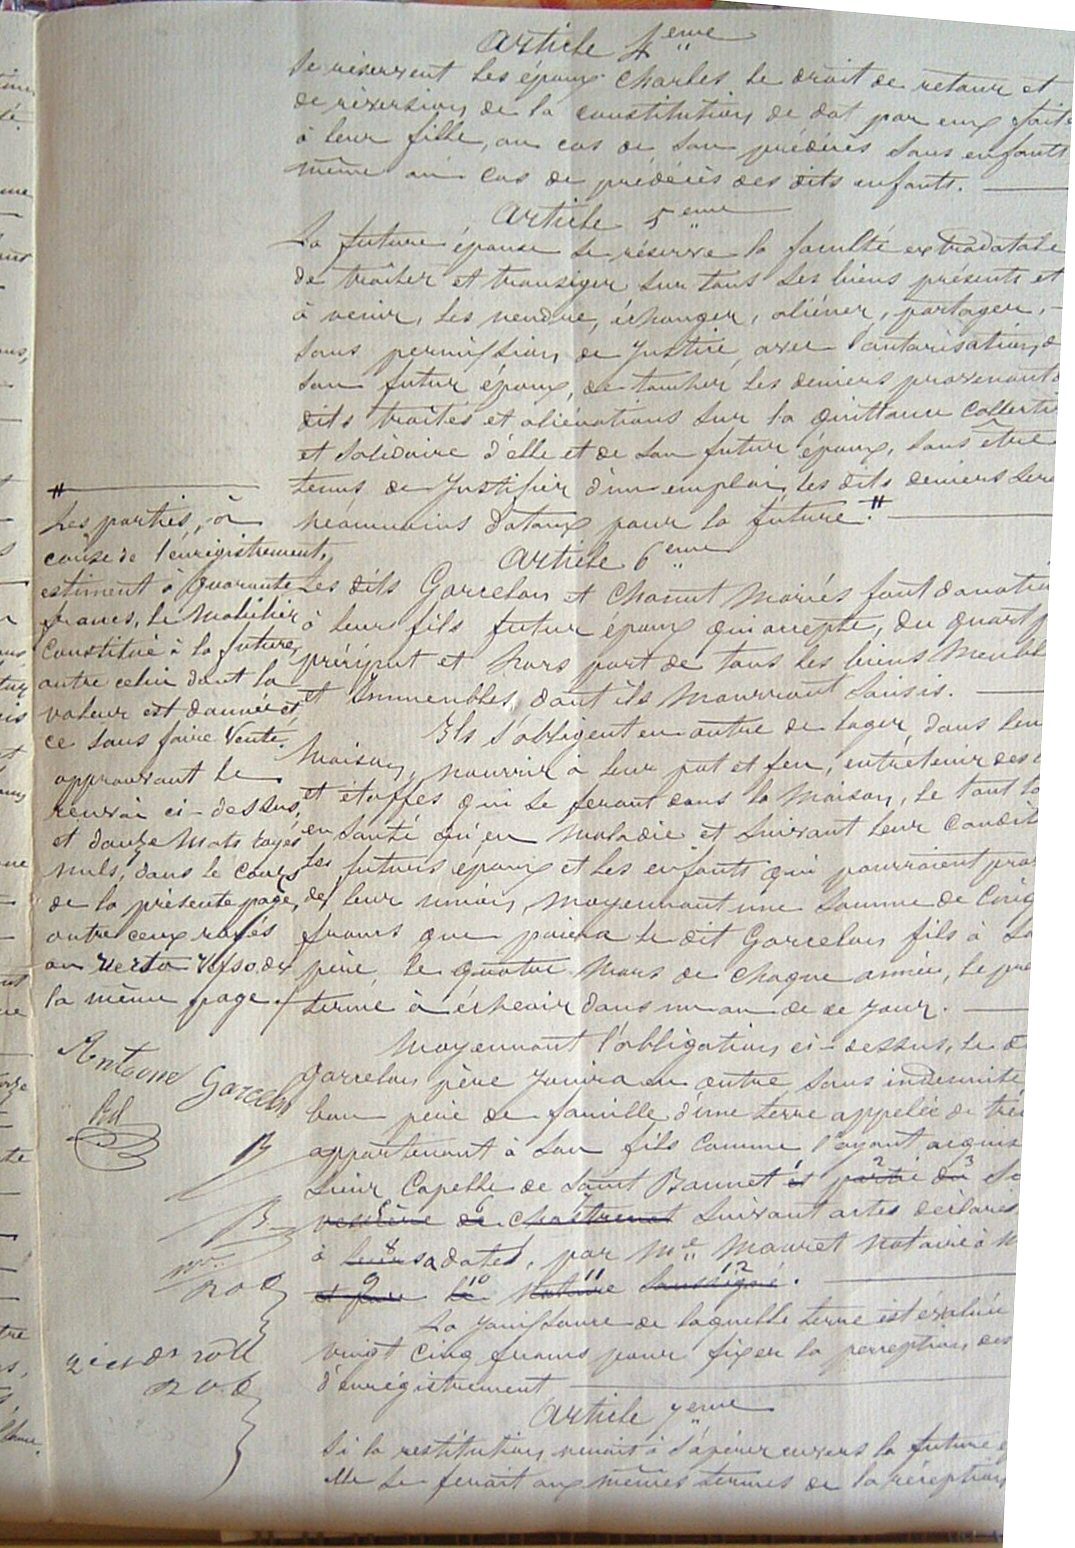 Article 4eme
Se réservent les époux Charles le droit de retour et
de réversion de la constitution de dot par eux faite
à leur fille, au cas de son prédécès sans enfants
même au cas de prédécès des dits enfants.
Article 5eme
La future épouse se réserve la faculté extradotale
de traiter et transiger sur tous ses biens présents et
à venir, les vendre, échanger, aliéner, partager,
sans permission de Justice avec l'autorisation d
son futur époux, de toucher les deniers provenant d
dits traités et aliénations sur la quittance collecti
et solidaire d'elle et de son futur époux, sans être
tenus de Justifier d'un emploi, les dits deniers ser
néanmoins dotaux pour la future. #
Article 6eme
Les dits Garcelon et Chanut Mariés font donatio
à leur fils futur époux qui accepte, du quart p
préciput et hors part de tous les biens Meubl
et Immeubles dont ils mourront saisis.
Ils s'obligent en outre de loger, dans leu
Maison, nourrir à leur pot et feu, entretenir des
et étoffes qui se feront dans la Maison, le tout t
en santé qu'en maladie et suivant leur condit
les futurs époux et les enfants qui pourraient pro
de leur union, moyennant une somme de Cinq
francs que paiera le dit Garcelon fils à so
père le quatre Mars de chaque année, le pre
terme à échoir dans un an de ce jour.
Moyennant l'obligation ci-dessus, le d
Garcelon père jouira en outre sans indemnité
bon père de famille d'une terre appelée de
appartenant à son fils comme l'ayant acquis
Sieur Capelle de Saint Bonnet et 1 partie 2 du 3
de Chastrenat suivant actes déclarés
à leur 8 sa date, par Me Mauret Notaire à
et par 9 le 10 Notaire 11 soussigné 12.
La jouissance de laquelle terre est évaluée
vingt cinq francs pour fixer la perception des
d'enrégistrement
Article 7eme
Si la restitution venait à s'opérer envers la future
elle se ferait aux mêmes termes de la réception
#
Les parties, à
cause de l'enrégistrement,
estiment à quarante
francs, le Mobilier
Constitué à la future,
outre celui dont la
valeur est donnée et
ce sans faire Vente.
approuvant le
renvoi ci-dessus,
et douze Mots rayés
nuls, dans le corps
de la présente page,
outre ceux rayés
au verso de
la même page.
Antoine Garcelon
B
B